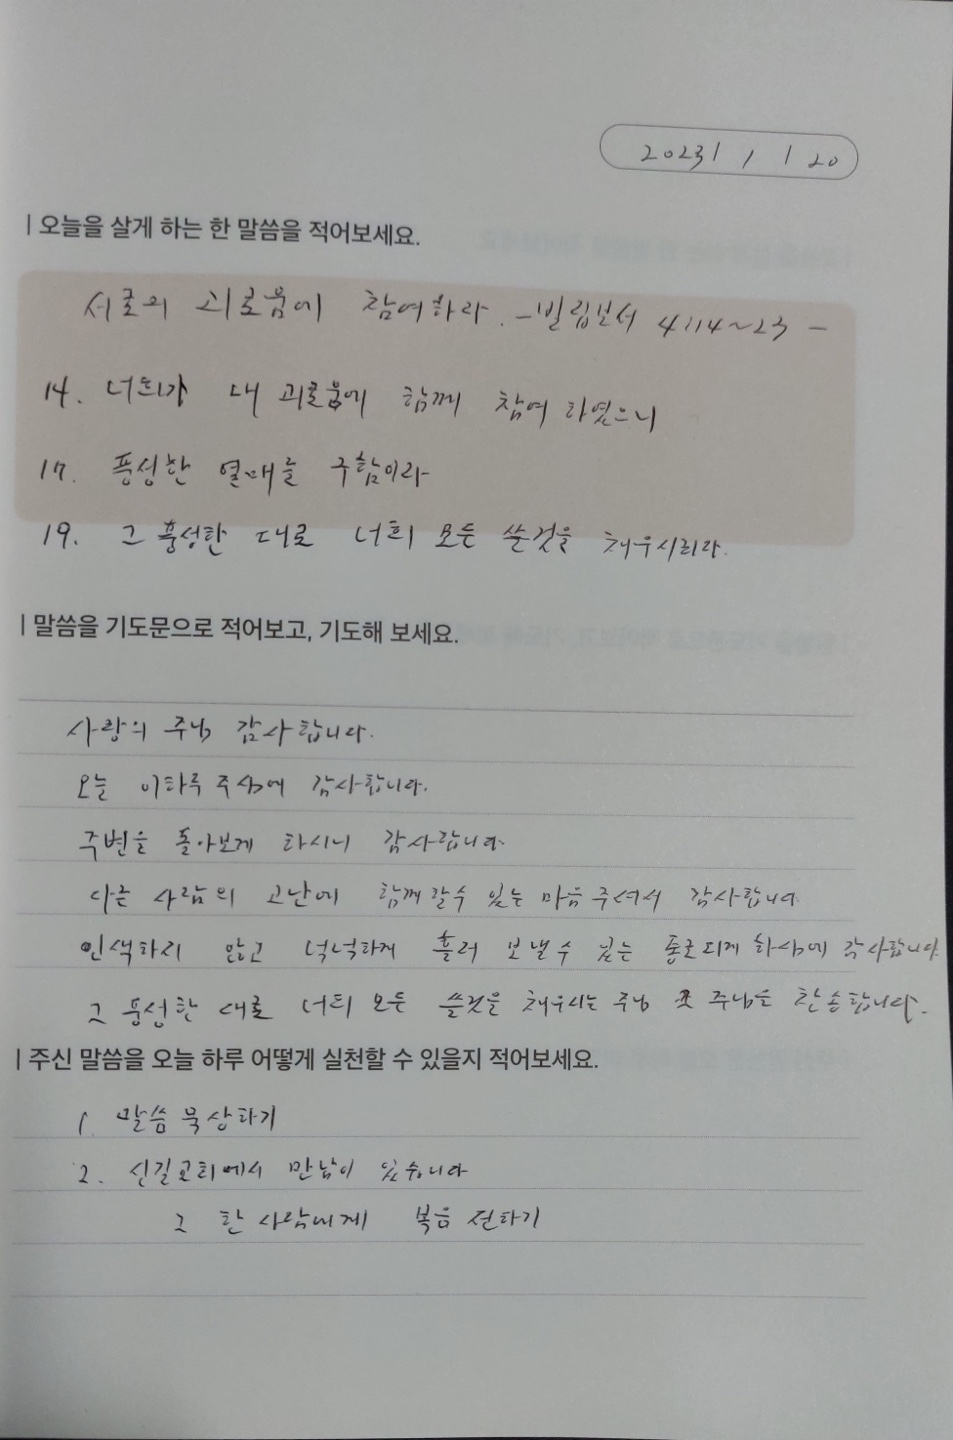 2023 / 1 / 20
오늘을 살게 하는 한 말씀을 적어보세요.
서로의 괴로움에 참여하라. - 빌립보서 4:14~23 -
14. 너희가 내 괴로움에 함께 참여 하였으니
17. 풍성한 열매를 구함이라
19. 그 풍성한 대로 너희 모든 쓸것을 채우시리라.
말씀을 기도문으로 적어보고, 기도해 보세요.
사랑의 주님 감사합니다.
오늘 이하루 주심에 감사합니다.
주변을 돌아보게 하시니 감사합니다.
다른 사람의 고난에 함께 할수 있는 마음 주셔서 감사합니다.
인색하지 않고 넉넉하게 흘러 보낼 수 있는 통로되게 하심에 감사합니다.
그 풍성한 대로 너희 모든 쓸것을 채우시는 주님 주님을 찬송합니다.
주신 말씀을 오늘 하루 어떻게 실천할 수 있을지 적어보세요.
1. 말씀 묵상하기
2. 신길교회에서 만남이 있습니다
그 한 사람에게 복음 전하기